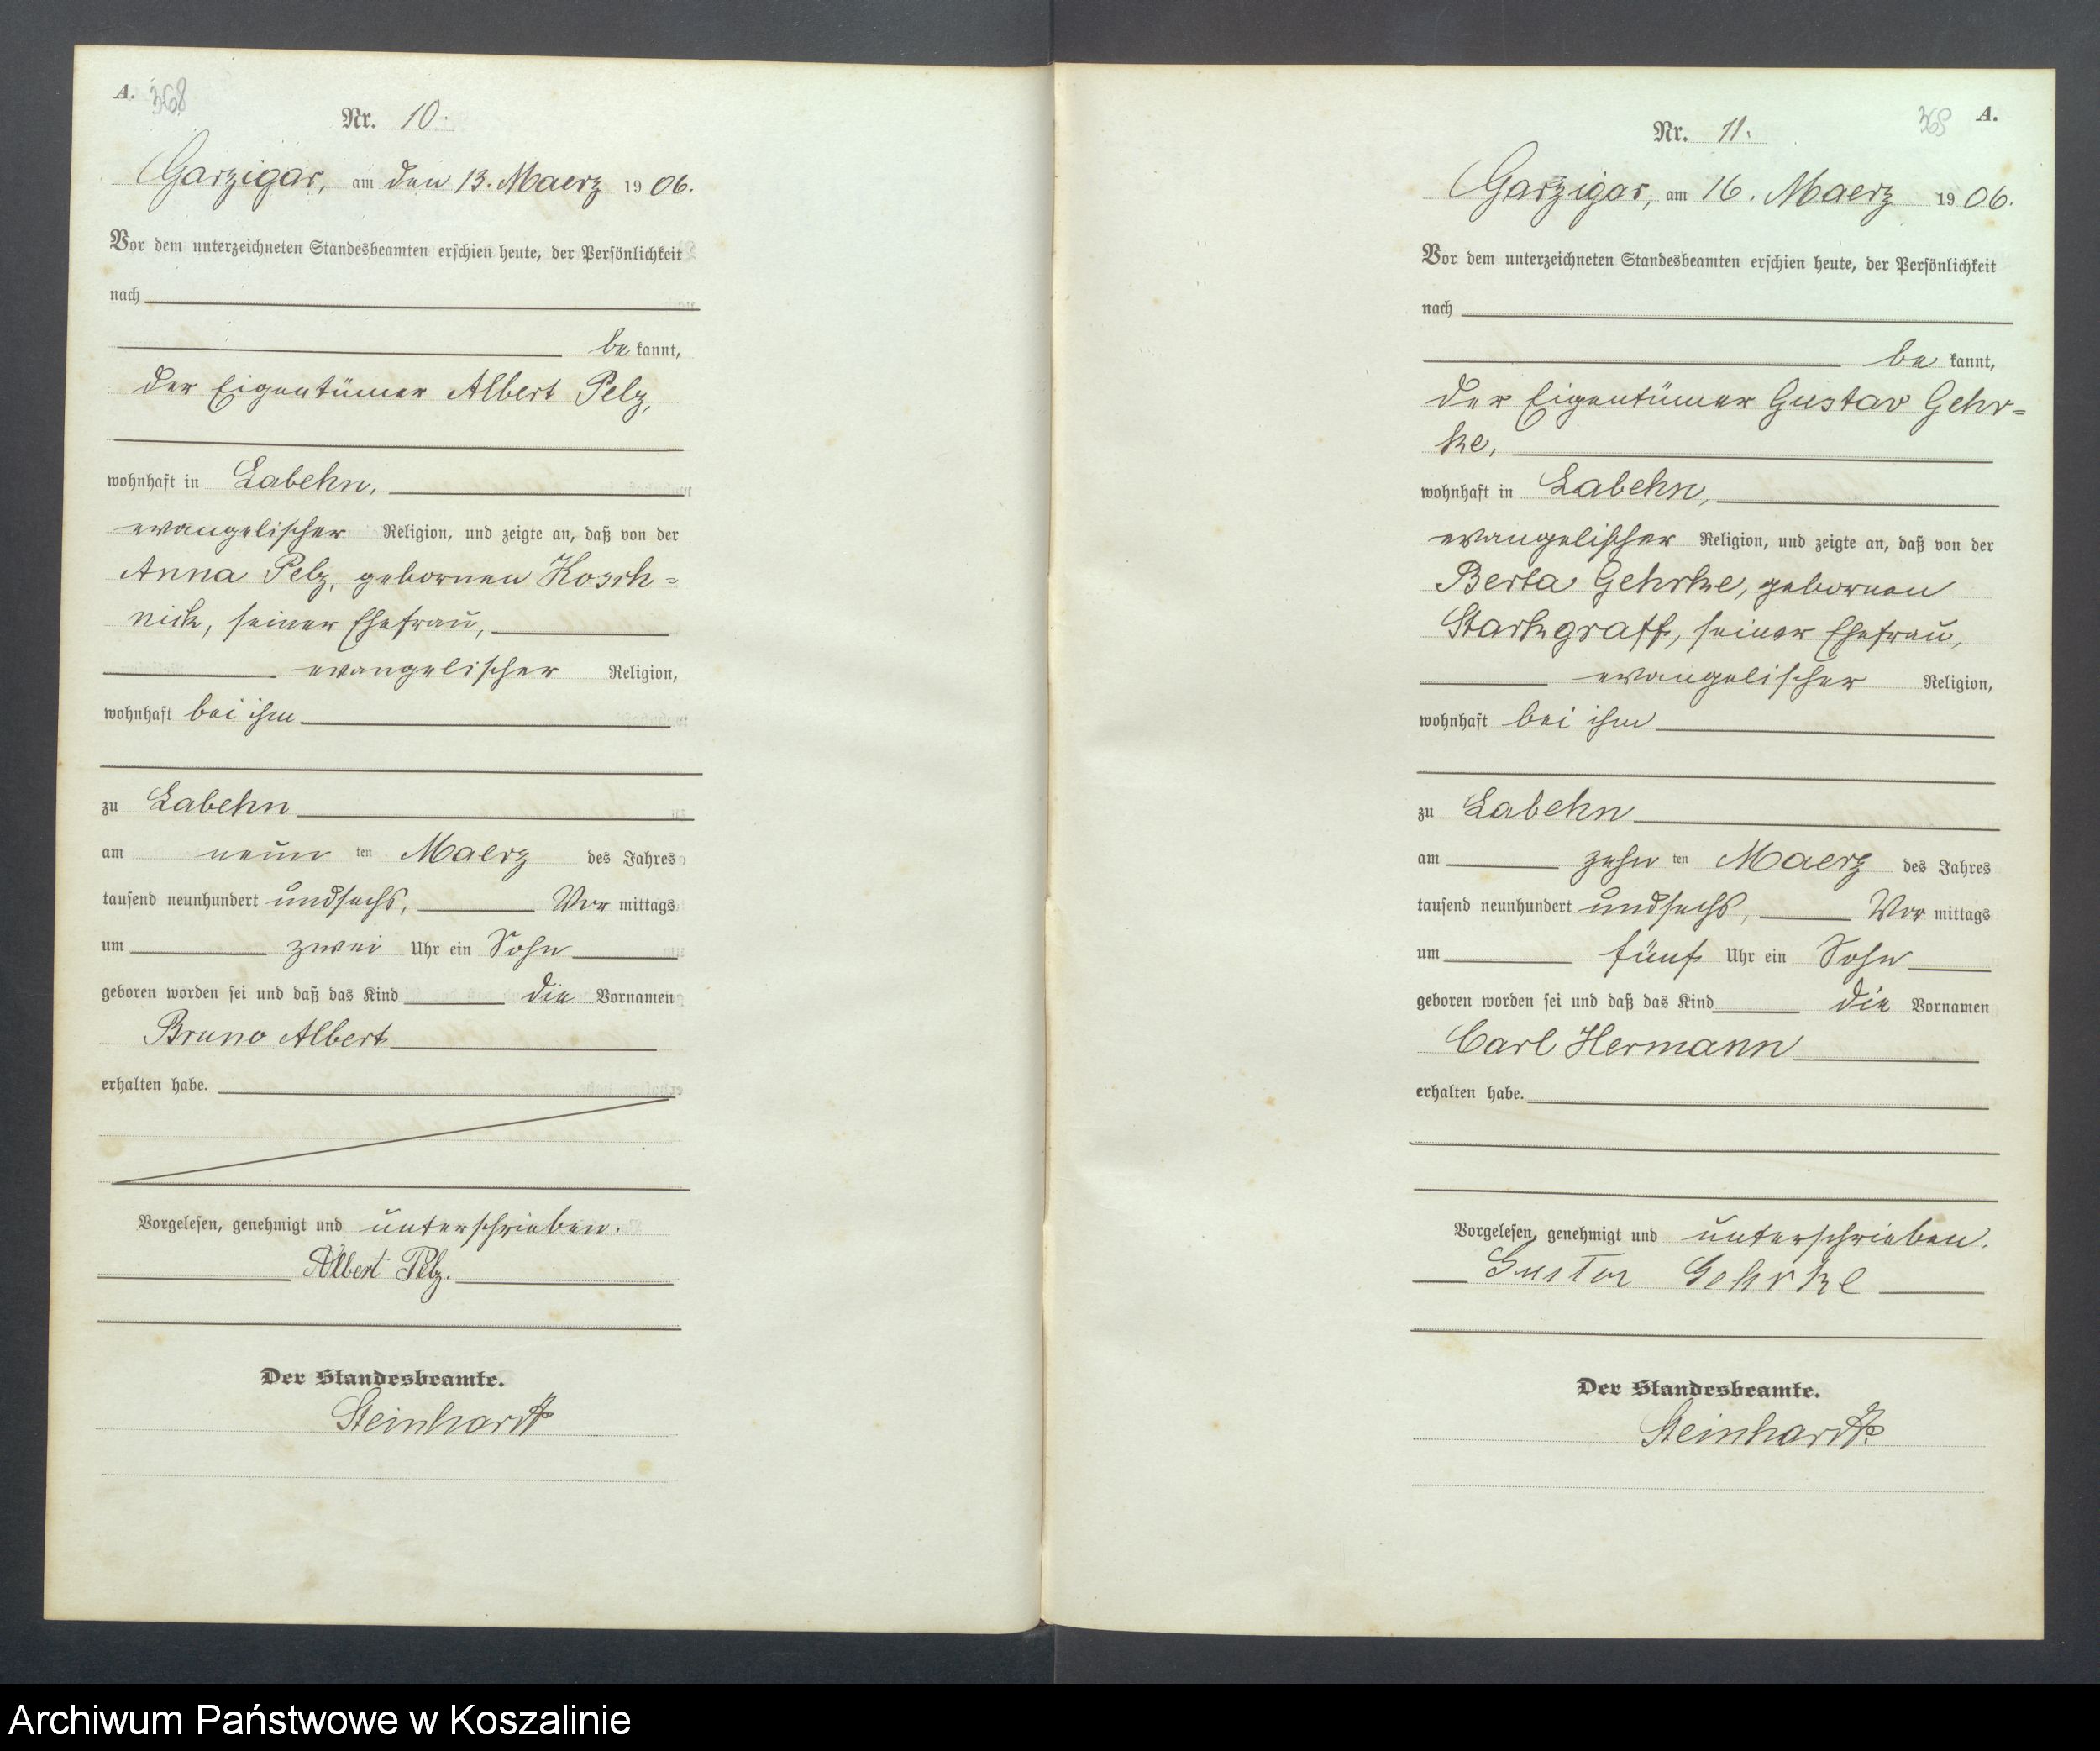 A. 368
Nr. 10.
Garzigar, am den 13. Maerz 1906.
Vor dem unterzeichneten Standesbeamten erschien heute, der Persönlichkeit
nach
be kannt,
der Eigentümer Albert Pelz,
wohnhaft in Labehn,
evangelischer Religion, und zeigte an, daß von der
Anna Pelz, gebornen Kosch=
nick, seiner Ehefrau,
evangelischer Religion,
wohnhaft bei ihm
zu Labehn
am neun ten Maerz des Jahres
tausend neunhundert undsechs, Vor mittags
um zwei Uhr ein Sohn
geboren worden sei und daß das Kind die Vornamen
Bruno Albert
erhalten habe.
Vorgelesen, genehmigt und unterschrieben.
Albert Pelz.
Der Standesbeamte.
Steinhardt
A.
Nr. 11.
Garzigar, am 16. Maerz 1906.
Vor dem unterzeichneten Standesbeamten erschien heute, der Persönlichkeit
nach
be kannt,
der Eigentümer Gustav Gehr=
ke,
wohnhaft in Labehn,
evangelischer Religion, und zeigte an, daß von der
Berta Gehrke, gebornen
Starkgraff, seiner Ehefrau,
evangelischer Religion,
wohnhaft bei ihm
zu Labehn
am zehn ten Maerz des Jahres
tausend neunhundert undsechs, Vor mittags
um fünf Uhr ein Sohn
geboren worden sei und daß das Kind die Vornamen
Carl Hermann
erhalten habe.
Vorgelesen, genehmigt und unterschrieben.
Gustav Gehrke
Der Standesbeamte.
Steinhardt.
Archiwum Państwowe w Koszalinie